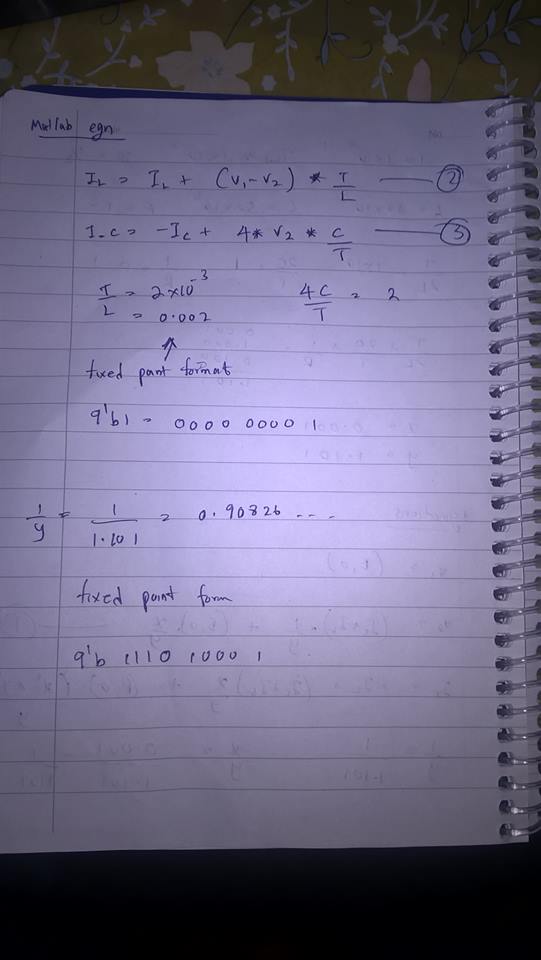 Matlab eqn
I_L = I_L + (V1-V2) * T/L —— (2)
I_c = -I_c + 4* V2 * C/T —— (3)
T/L = 2x10^-3    4C/T = 2
= 0.002
↑
fixed point format
9'b1 = 0000 0000 1
1/y = 1/1.101 = 0.90826 ...
fixed point form
9'b 1110 1000 1